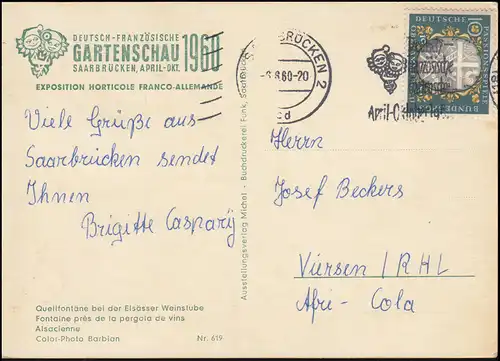 DEUTSCH-FRANZÖSISCHE
GARTENSCHAU 1960
SAARBRÜCKEN, APRIL-OKT.
EXPOSITION HORTICOLE FRANCO-ALLEMANDE
Viele Grüße aus
Saarbrücken sendet
Ihnen
Brigitte Caspary
Quellfontäne bei der Elsässer Weinstube
Fontaine près de la pergola de vins
Alsacienne
Color-Photo Barbian Nr. 619
Ausstellungsverlag Michel - Buchdruckerei Funk, Saarbrücken
BRÜCKEN 2
8.60-20
cd
April-O
DEUTSCHE
BUNDESPOST
PASSIONSSPIELE
Herrn
Josef Beckers
Viersen / RHL
Afri-Cola